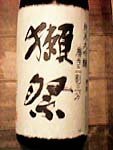 純米大吟醸
磨き二割三分
獺祭